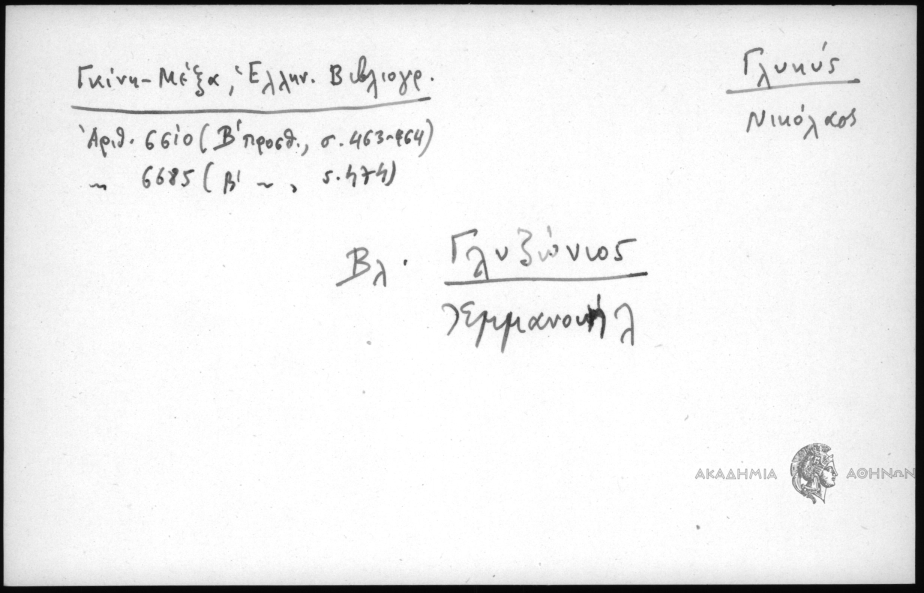 Γλυκύς
Νικόλαος
Γκίνη-Μέξα, Ἑλλην. Βιβλιογρ.
Ἀριθ. 6610 (Β' προσθ., σ. 463-464)
〃 6685 (Β' 〃, σ. 474)
Βλ. Γλυζώνιος
Ἐμμανουήλ
ΑΚΑΔΗΜΙΑ ΑΘΗΝΩΝ